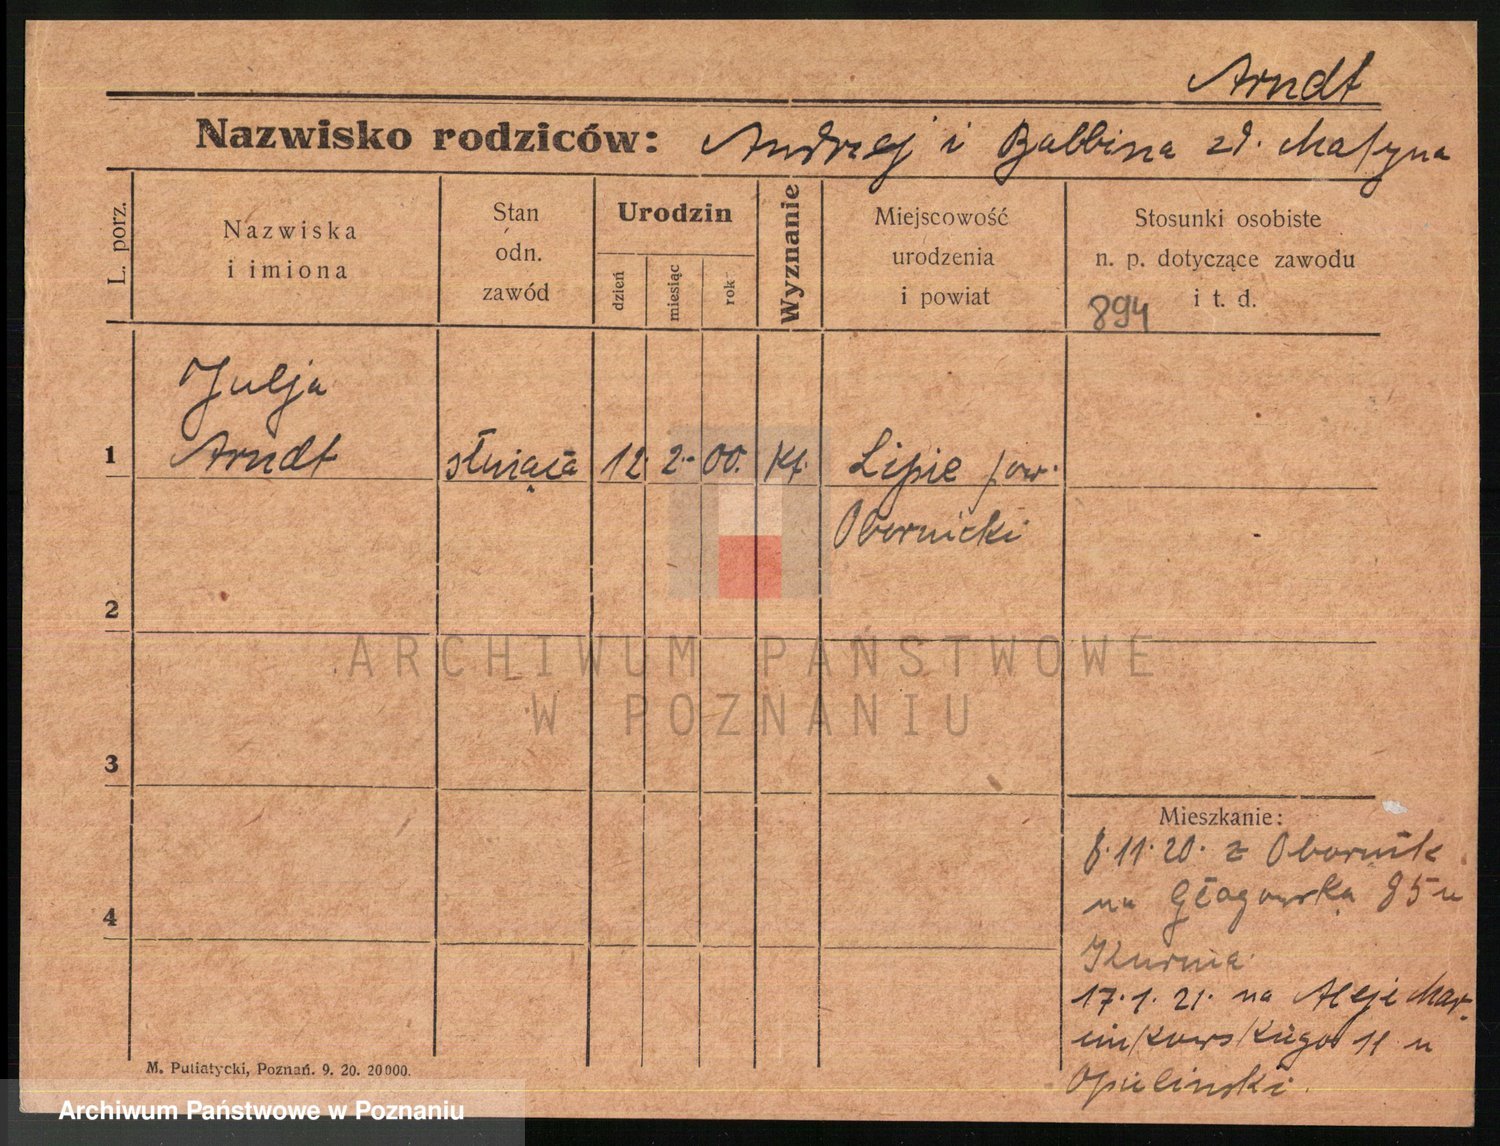 Arndt
Nazwisko rodziców: Andrzej i Balbina zd. Matyna
L. porz.
Nazwiska
i imiona
Stan
odn.
zawód
Urodzin
dzień
miesiąc
rok
Wyznanie
Miejscowość
urodzenia
i powiat
Stosunki osobiste
n. p. dotyczące zawodu
i t. d.
894
Julja
1 Arndt służąca 12. 2. 00. kt. Lipie pow.
Obornicki
2
ARCHIWUM PAŃSTWOWE
W POZNANIU
3
Mieszkanie:
8.11.20. z Obornik
na Głogowska 85 u
4
17.1.21. na Aleje Mar-
cinkowskiego 11 u
Opieliński.
M. Putiatycki, Poznań. 9. 20. 20000.
Archiwum Państwowe w Poznaniu